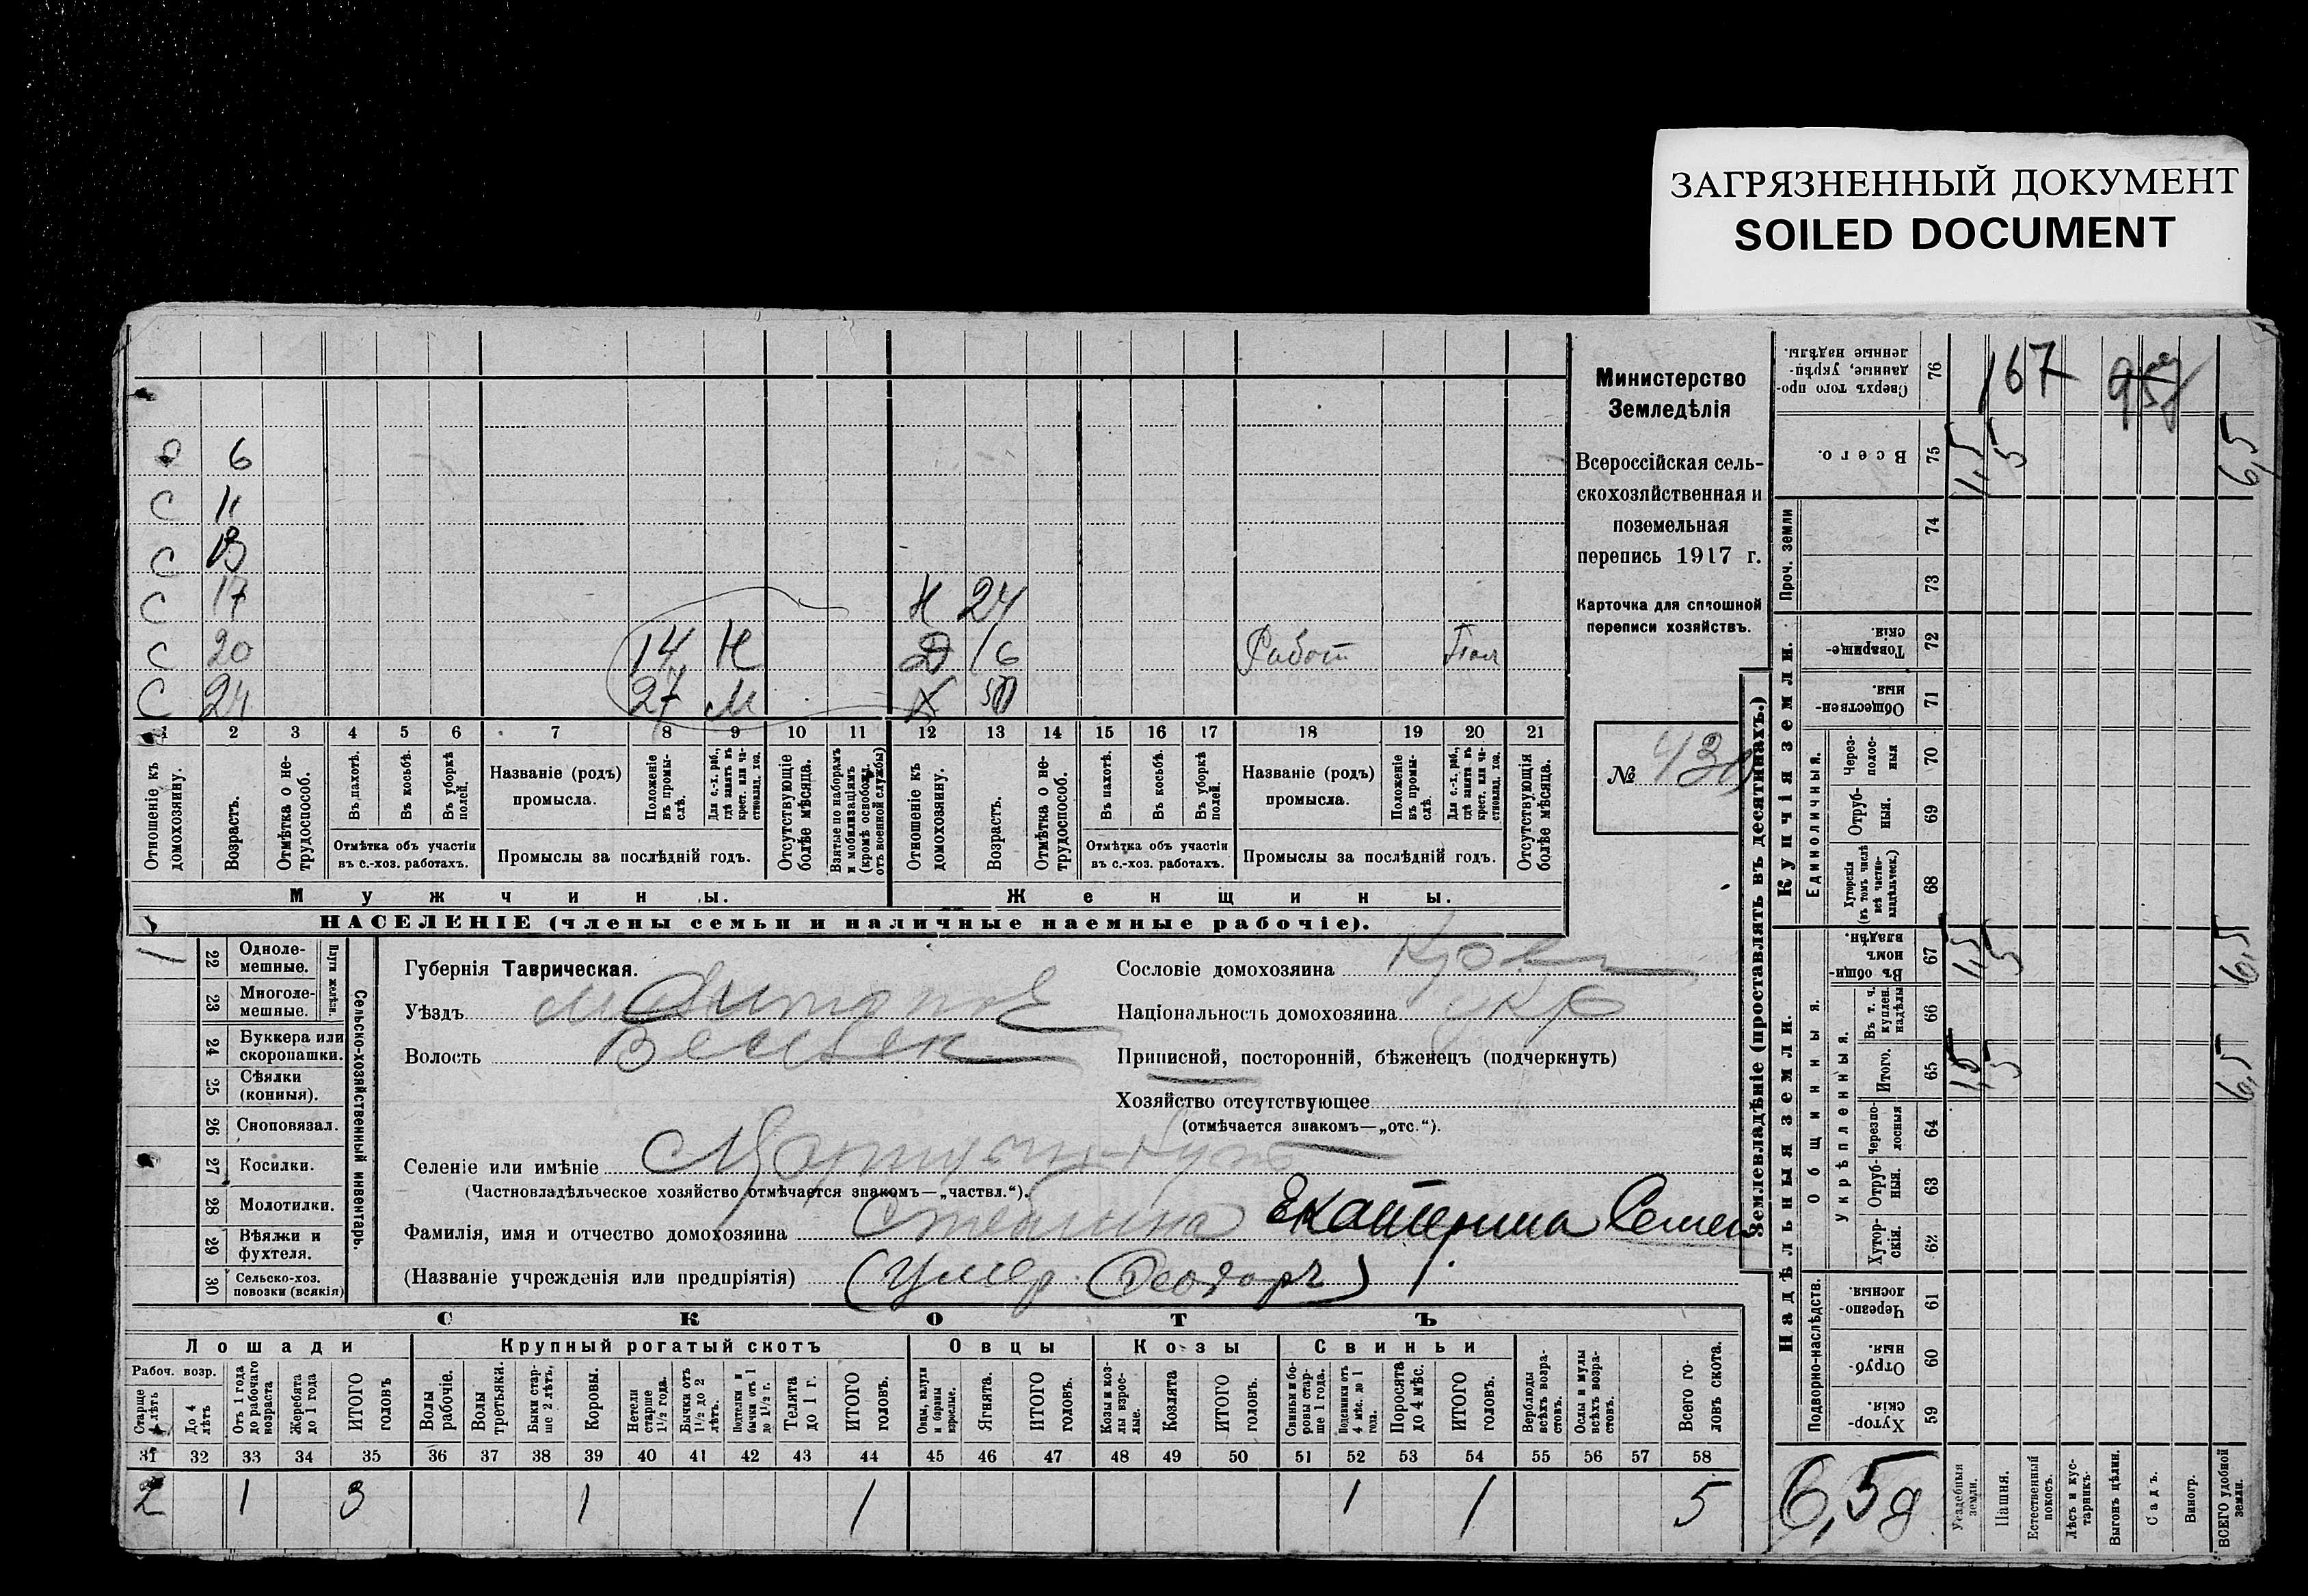 ЗАГРЯЗНЕННЫЙ ДОКУМЕНТ
SOILED DOCUMENT
Министерство
Земледѣлія
Всероссійская сель-
скохозяйственная и
поземельная
перепись 1917 г.
Карточка для сплошной
переписи хозяйствъ.
№
6
С 11
С 13
С 17 24
С 20 14 Н Д 16 Работ
С 24 27 М
1 2 3 4 5 6 7 8 9 10 11 12 13 14 15 16 17 18 19 20 21
Отношеніе къ домохозяину.
Возрастъ.
Отмѣтка о не-трудоспособ.
Въ пахотѣ.
Въ косьбѣ.
Въ уборкѣ полей.
Отмѣтка объ участіи въ с.-хоз. работахъ.
Названіе (родъ) промысла.
Положеніе въ промы-слѣ.
Для с.-х. раб., гдѣ занятъ въ крест. или ча-стновлад. хоз.
Промыслы за послѣдній годъ.
Отсутствующіе болѣе мѣсяца.
Взятые по наборамъ и мобилизаціямъ (кромѣ освобожд. отъ военной службы)
Отношеніе къ домохозяину.
Возрастъ.
Отмѣтка о не-трудоспособ.
Въ пахотѣ.
Въ косьбѣ.
Въ уборкѣ полей.
Отмѣтка объ участіи въ с.-хоз. работахъ.
Названіе (родъ) промысла.
Положеніе въ промы-слѣ.
Для с.-х. раб., гдѣ занята въ крест. или ча-стновлад. хоз.
Промыслы за послѣдній годъ.
Отсутствующія болѣе мѣсяца.
Мужчины. Женщины.
НАСЕЛЕНІЕ (члены семьи и наличные наемные рабочіе).
22 Одноле-мешные.
23 Многоле-мешные.
Плуги желѣзн.
24 Буккера или скоропашки.
25 Сѣялки (конныя).
26 Сноповязал.
27 Косилки.
28 Молотилки.
29 Вѣялки и фухтеля.
30 Сельско-хоз. повозки (всякія)
Сельско-хозяйственный инвентарь.
Губернія Таврическая.
Уѣздъ Мелитопол
Волость
Сословіе домохозяина
Національность домохозяина укр
Приписной, посторонній, бѣженецъ (подчеркнуть)
Хозяйство отсутствующее
(отмѣчается знакомъ—„отс.“).
Селеніе или имѣніе
(Частновладѣльческое хозяйство отмѣчается знакомъ—„частвл.“).
Фамилія, имя и отчество домохозяина Екатерина Семен
(Названіе учрежденія или предпріятія) (Умер. Феодоръ)
СКОТЪ
Лошади Крупный рогатый скотъ Овцы Козы Свиньи
Рабоч. возр.
Старше 4 лѣтъ
До 4 лѣтъ
Отъ 1 года до рабочаго возраста
Жеребята до 1 года
ИТОГО головъ
Волы рабочіе.
Волы третьяки.
Быки стар-ше 2 лѣтъ.
Коровы.
Нетели старше 1½ года.
Бычки отъ 1½ до 2 лѣтъ.
Подтелки и бычки отъ 1 до 1½ г.
Телята до 1 г.
ИТОГО головъ.
Овцы, валухи и бараны взрослые.
Ягнята.
ИТОГО головъ.
Козы и коз-лы взрос-лые.
Козлята
ИТОГО головъ.
Свиньи и бо-ровы стар-ше 1 года.
Подсвинки отъ 4 мѣс. до 1 года.
Поросята до 4 мѣс.
ИТОГО головъ.
Верблюды всѣхъ возра-стовъ.
Ослы и мулы всѣхъ возра-стовъ.
Всего го-ловъ скота.
31 32 33 34 35 36 37 38 39 40 41 42 43 44 45 46 47 48 49 50 51 52 53 54 55 56 57 58
2 1 3 1 1 1 1 5
Землевладѣніе (проставлять въ десятинахъ.)
Надѣльныя земли. Купчія земли.
Подворно-наслѣдств.
Общинныя.
Укрѣпленныя.
Единоличныя.
Проч. земли
Сверхъ того про-данные, укрѣп-ленные надѣлы. 76 167
Всего. 75 1,5 5 6,5
74
73
Товарище-скія. 72
Обществен-ныя. 71
Через-полос-ныя 70
Отруб-ныя. 69
Хуторскія (въ томъ числѣ всѣ частно-владѣльческ.) 68
Въ общи-номъ владѣн. 67 1,5 5 6,5
Въ т. ч. куплен. надѣлы 66
Итого. 65 1,5 5 6,5
Черезпо-лосныя 64
Отруб-ныя. 63
Хутор-скія. 62
Черезпо-лосныя. 61
Отруб-ныя. 60
Хутор-скія. 59
6,5д
Усадебныя земли.
Пашня.
Естественный покосъ.
Лѣсъ и кус-тарникъ.
Выгонъ цѣлин.
Садъ.
Виногр.
ВСЕГО удобной земли.